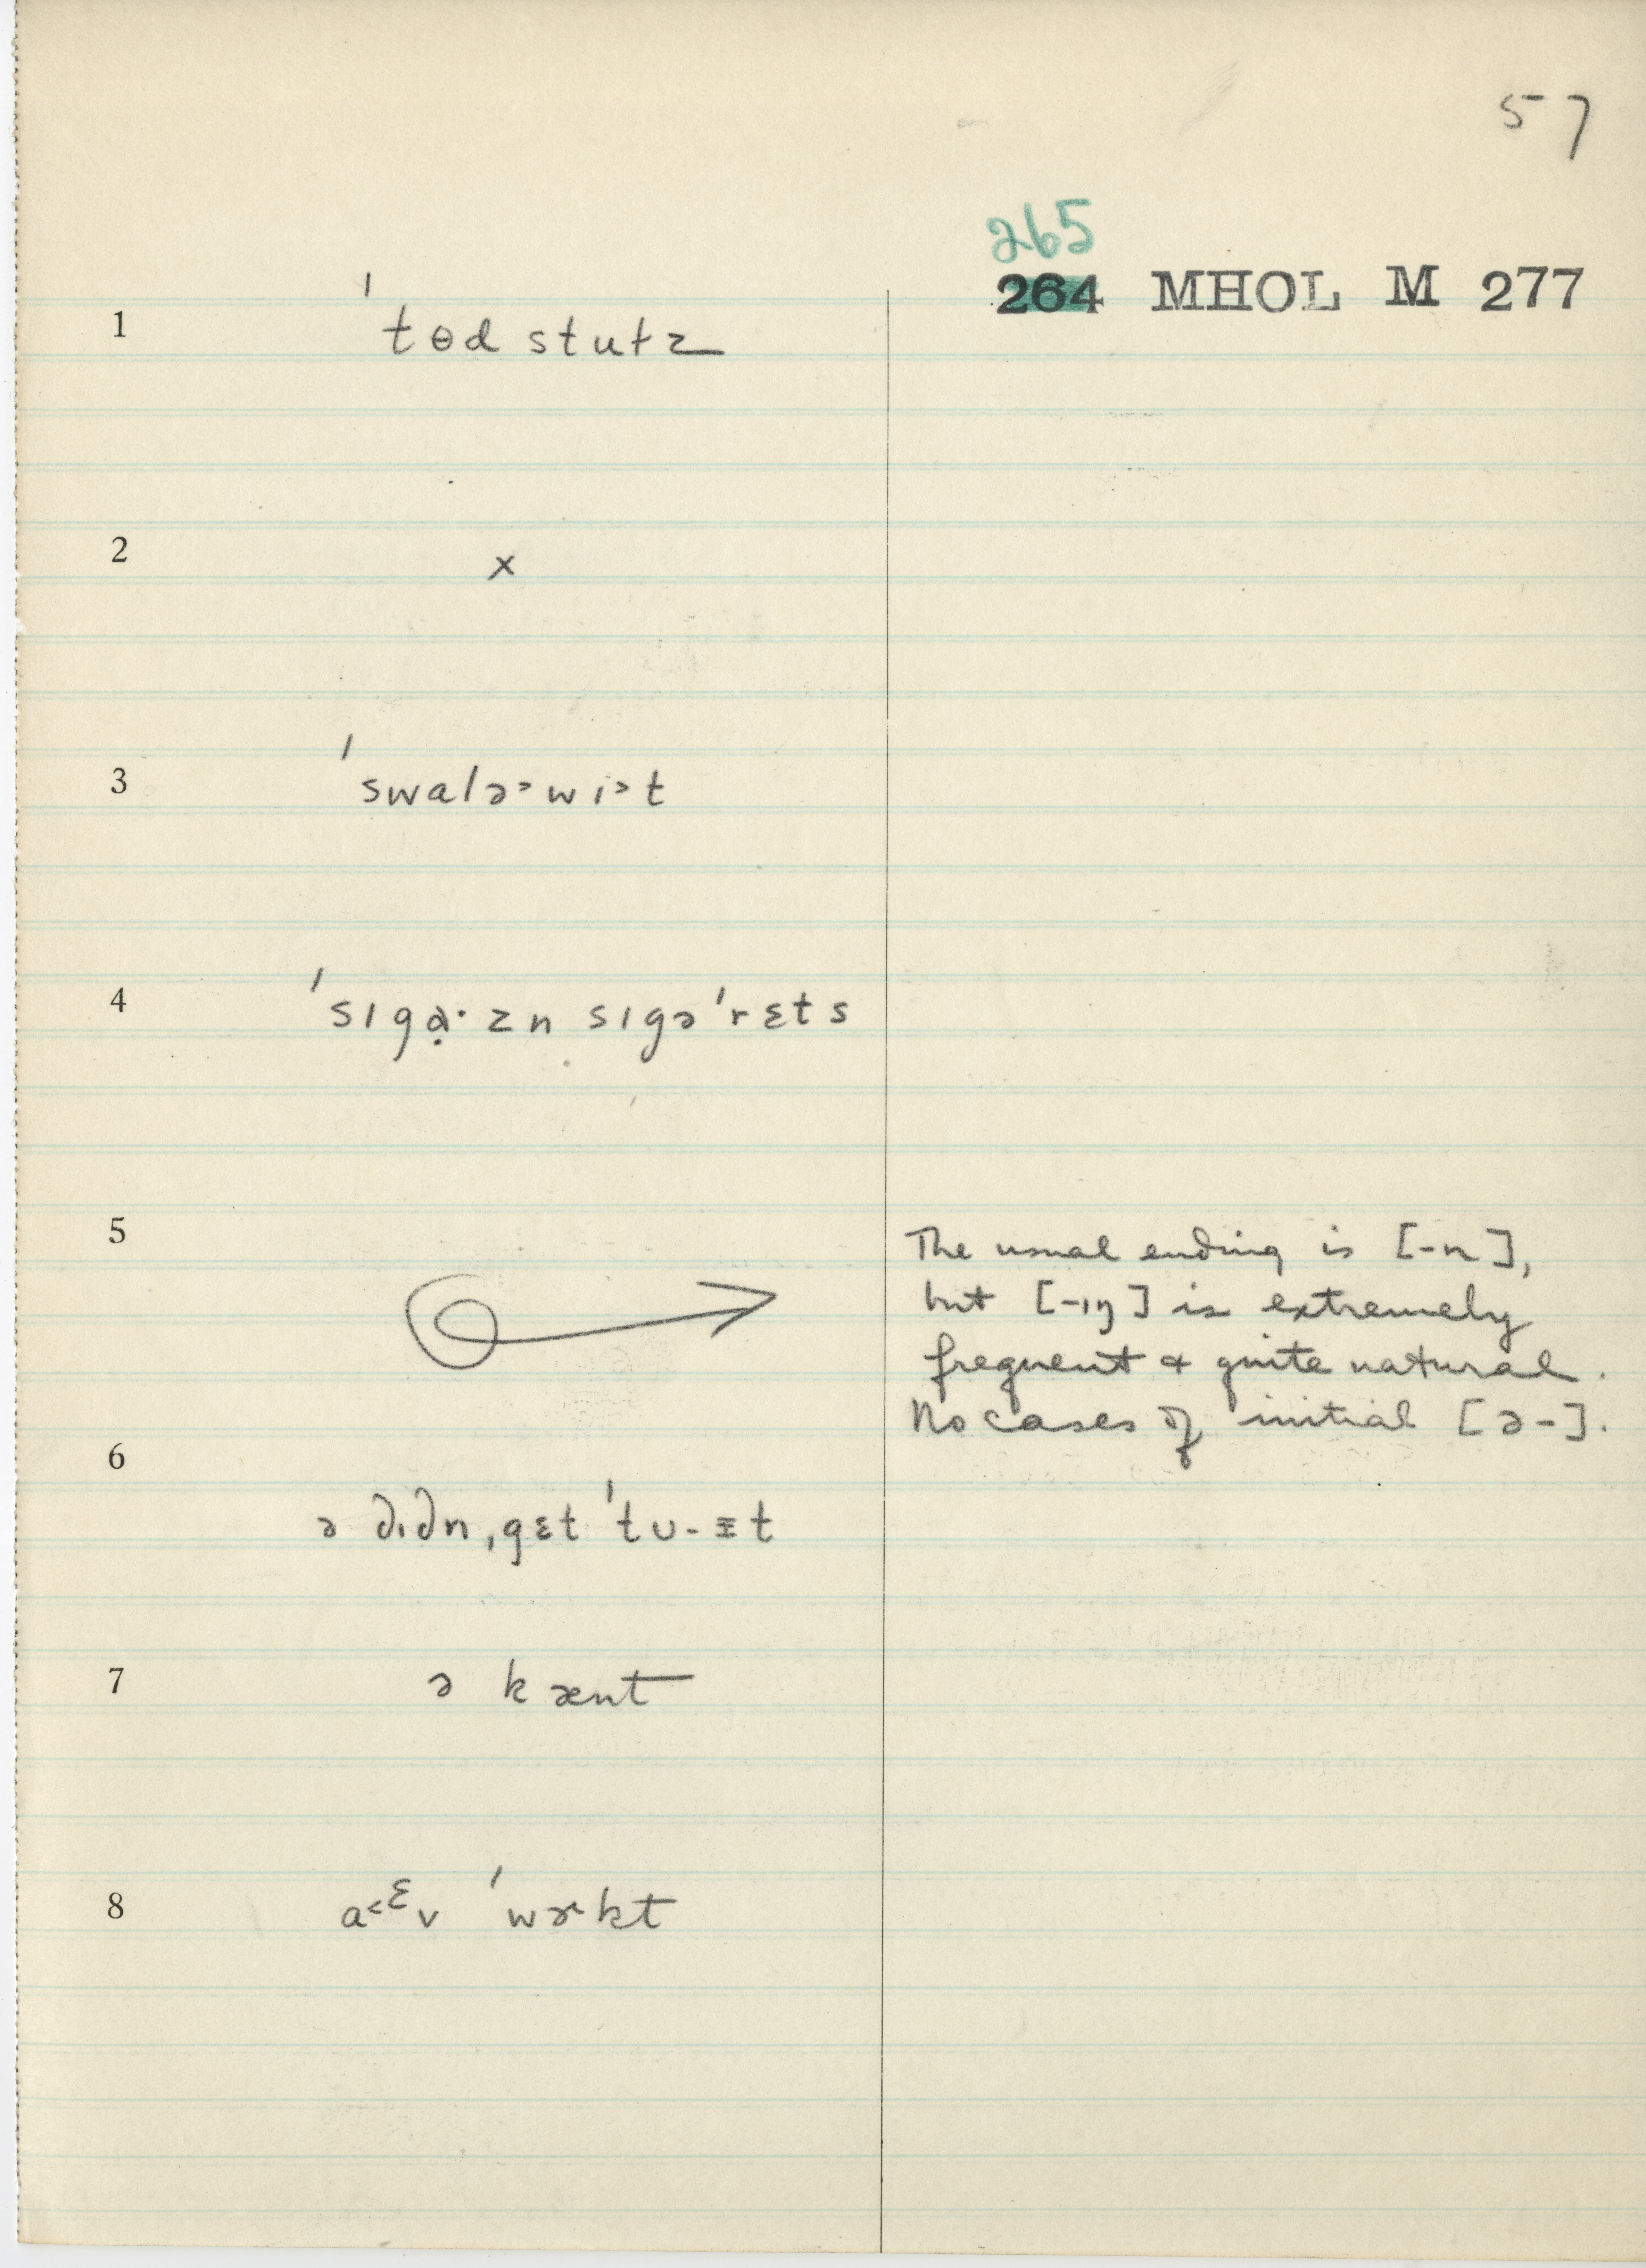 57
265
264 MHOL M 277
1 ˈtɵd stutz
2 x
3 ˈswalə˃wi˃t
4 ˈsɪgɑ̣·zn sɪgəˈrɛts
5 The usual ending is [-n],
but [-ɪŋ] is extremely
frequent & quite natural.
No cases of initial [ə-].
6 ə dɪdn ˌgɛt ˈtʊ-ɪt
7 ə kænt
8 a˂ᵋv ˈwɚkt